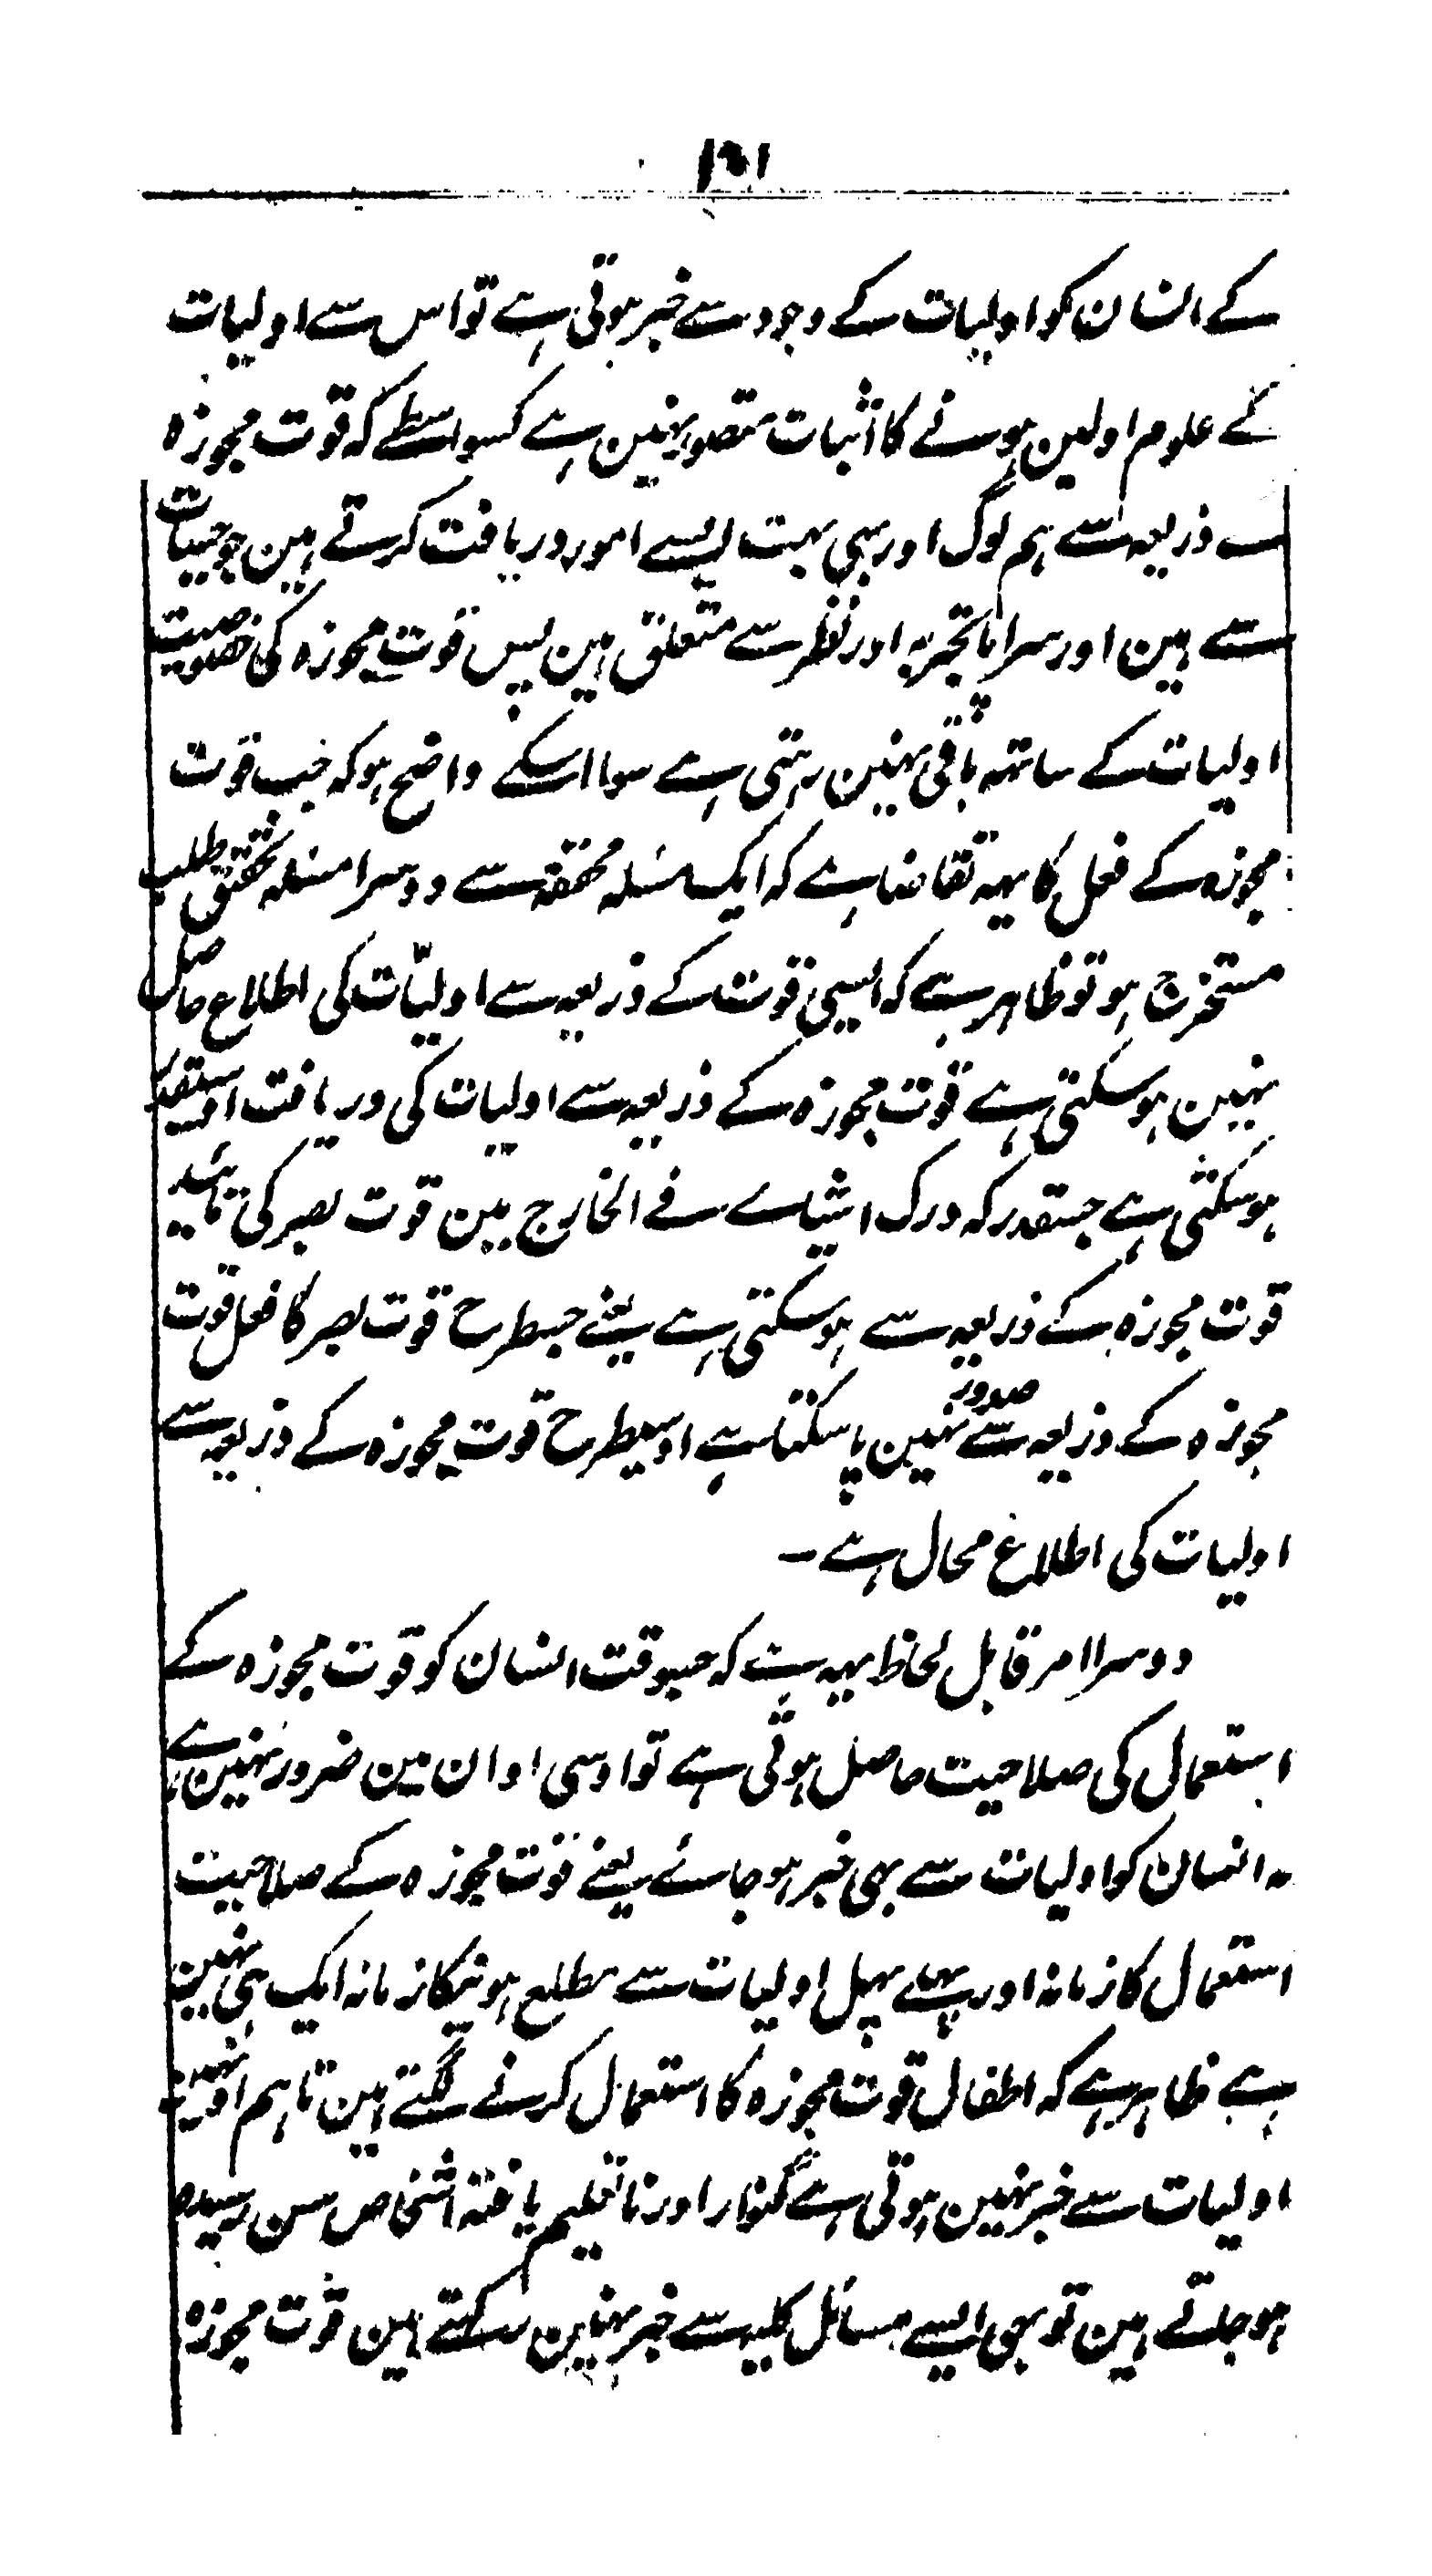 کے انسان کو اولیات کے وجود سے خبر ہوتی ہے تو اس سے اولیات
کے علوم اولین ہونے کا اثبات متصور نہین ہے کسواسطے کہ قوت مجوزہ
کے ذریعہ سے ہم لوگ اور بہی بہت ایسے امور دریافت کرتے ہین جو حسیات
سے ہین اور سراپا تجربہ اور نظر سے متعلق ہین پس قوت مجوزہ کی خصوصیت
اولیات کے ساتہہ باقی نہین رہتی ہے سوا اسکے واضح ہو کہ جب قوت
مجوزہ کے فعل کا یہہ تقاضا ہے کہ ایک مسئلہ محققہ سے دوسرا مسئلہ تحقیق طلب
مستخرج ہو تو ظاہر ہے کہ ایسی قوت کے ذریعہ سے اولیّات کی اطلاع حاصل
نہین ہو سکتی ہے قوت مجوزہ کے ذریعہ سے اولیات کی دریافت اوسیقدر
ہو سکتی ہے جسقدر کہ درک اشیاے فے الخارج مین قوت بصر کی تائید
قوت مجوزہ کے ذریعہ سے ہو سکتی ہے یعنے جسطرح قوت بصر کا فعل قوت
مجوزہ کے ذریعہ سے صدور نہین پا سکتا ہے اوسیطرح قوت مجوزہ کے ذریعہ سے
اولیات کی اطلاع محال ہے ۔
دوسرا امر قابل لحاظ یہہ ہے کہ جسوقت انسان کو قوت مجوزہ کے
استعمال کی صلاحیت حاصل ہوتی ہے تو اوسی اوان مین ضرور نہین ہے
کہ انسان کو اولیات سے بہی خبر ہو جائے یعنے قوت مجوزہ کے صلاحیت
استعمال کا زمانہ اور پہلے پہل اولیات سے مطلع ہونیکا زمانہ ایک ہی نہین
ہے ظاہر ہے کہ اطفال قوت مجوزہ کا استعمال کرنے لگتے ہین تاہم اونہین
اولیات سے خبر نہین ہوتی ہے گنوار اور ناتعلیم یافتہ اشخاص سن رسیدہ
ہو جاتے ہین تو بہی ایسے مسائل کلیہ سے خبر نہین رکہتے ہین قوت مجوزہ